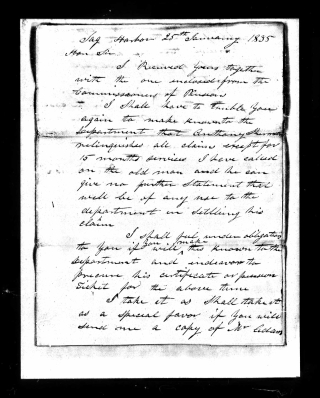 Sag Harbor 25th Jainuary 1835
Hon Sir
I Recieved yours together
with the one inclosed from the
Commissioner of Pension
I Shall have to truble you
again to make known to the
Department that Anthony
relinquishes all claim except for
15 months services I have called
on the old man and he can
give no further Statement that
will be of any use to the
department in Settling his
claim
I shall feel under obligation
to you if you will make this known to the
Department and indeavor to
procure his certificate or pension
Ticket for the above time
I take it as Shall take it
as a Special favor if you will
send one a copy of Mr Adams